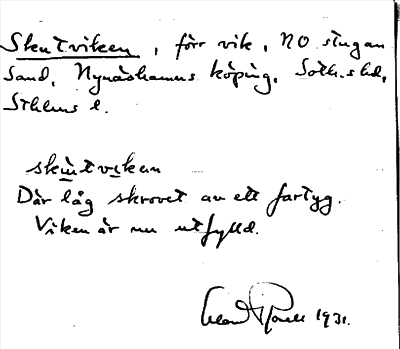 Skutviken, förr vik, NO stugan
Sand, Nynäshamns köping, Soth. hd,
Sthlms l.
skutviken
Där låg skrovet av ett fartyg.
Viken är nu utfylld.
1931.